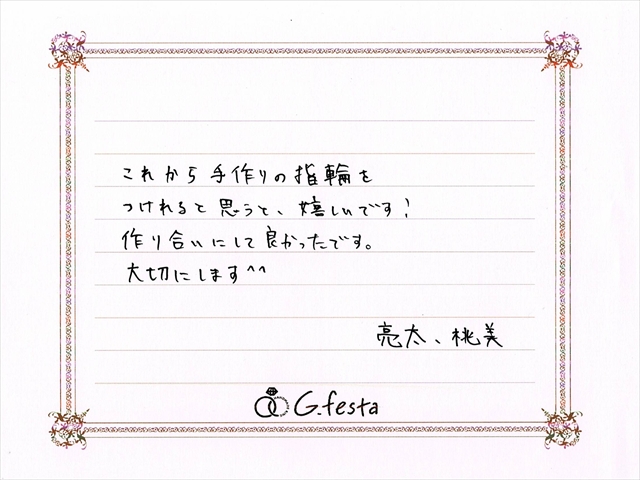 これから手作りの指輪を
つけれると思うと、嬉しいです!
作り合いにして良かったです。
大切にします^^
亮太、桃美
G.festa